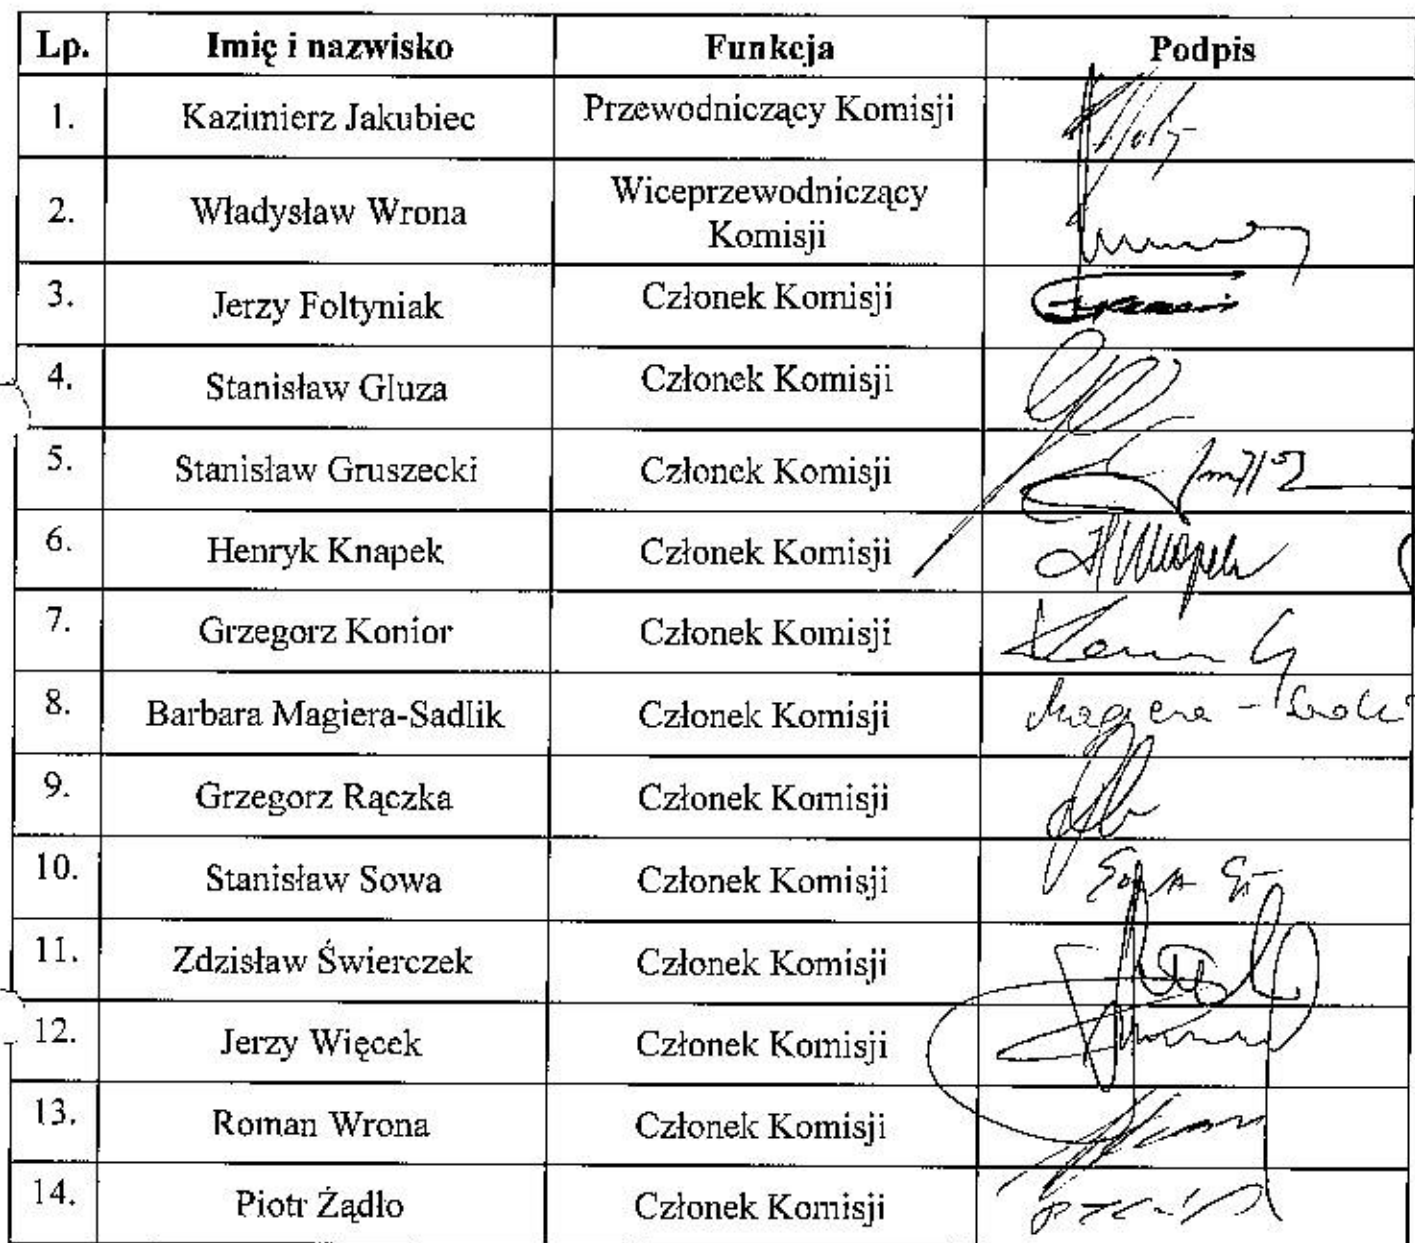 Lp. Imię i nazwisko Funkcja Podpis
1. Kazimierz Jakubiec Przewodniczący Komisji
2. Władysław Wrona Wiceprzewodniczący
Komisji
3. Jerzy Foltyniak Członek Komisji
4. Stanisław Gluza Członek Komisji
5. Stanisław Gruszecki Członek Komisji
6. Henryk Knapek Członek Komisji
7. Grzegorz Konior Członek Komisji
8. Barbara Magiera-Sadlik Członek Komisji Magiera -
9. Grzegorz Rączka Członek Komisji
10. Stanisław Sowa Członek Komisji
11. Zdzisław Świerczek Członek Komisji
12. Jerzy Więcek Członek Komisji
13. Roman Wrona Członek Komisji
14. Piotr Żądło Członek Komisji